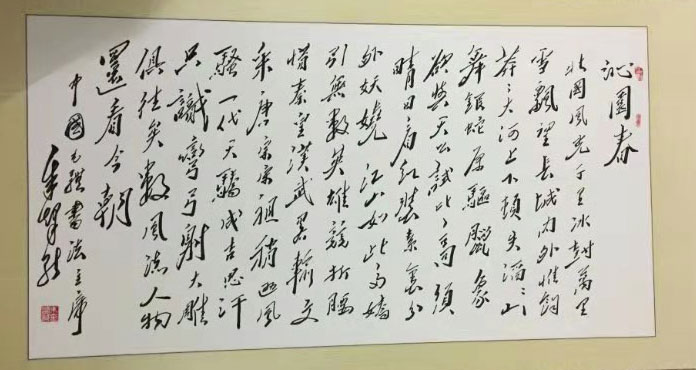 沁園春
北国風光千里冰封萬里
雪飄望長城内外惟餘
莽々大河上下頓失滔々山
舞銀蛇原驅臘象
欲與天公試比高須
晴日看红装素裹分
外妖嬈江山如此多嬌
引無數英雄競折腰
惜秦皇漢武畧輸文
采唐宗宋祖稍遜風
騷一代天驕成吉思汗
只識彎弓射大雕
俱往矣數風流人物
還看今朝
中國毛體書法主席